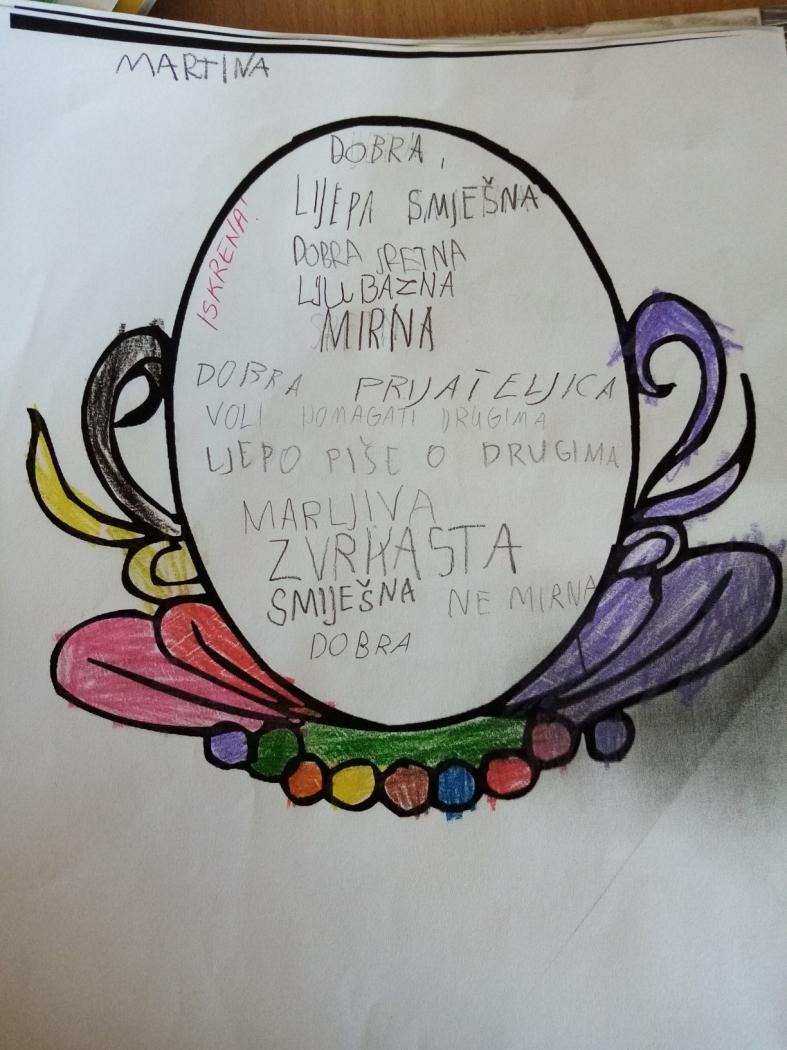 MARTINA
DOBRA,
LIJEPA SMJEŠNA
ISKRENA!
DOBRA SRETNA
LJUBAZNA
MIRNA
DOBRA PRIJATELJICA
VOLI POMAGATI DRUGIMA
LJEPO PIŠE O DRUGIMA
MARLJIVA
ZVRKASTA
SMIJEŠNA NE MIRNA
DOBRA